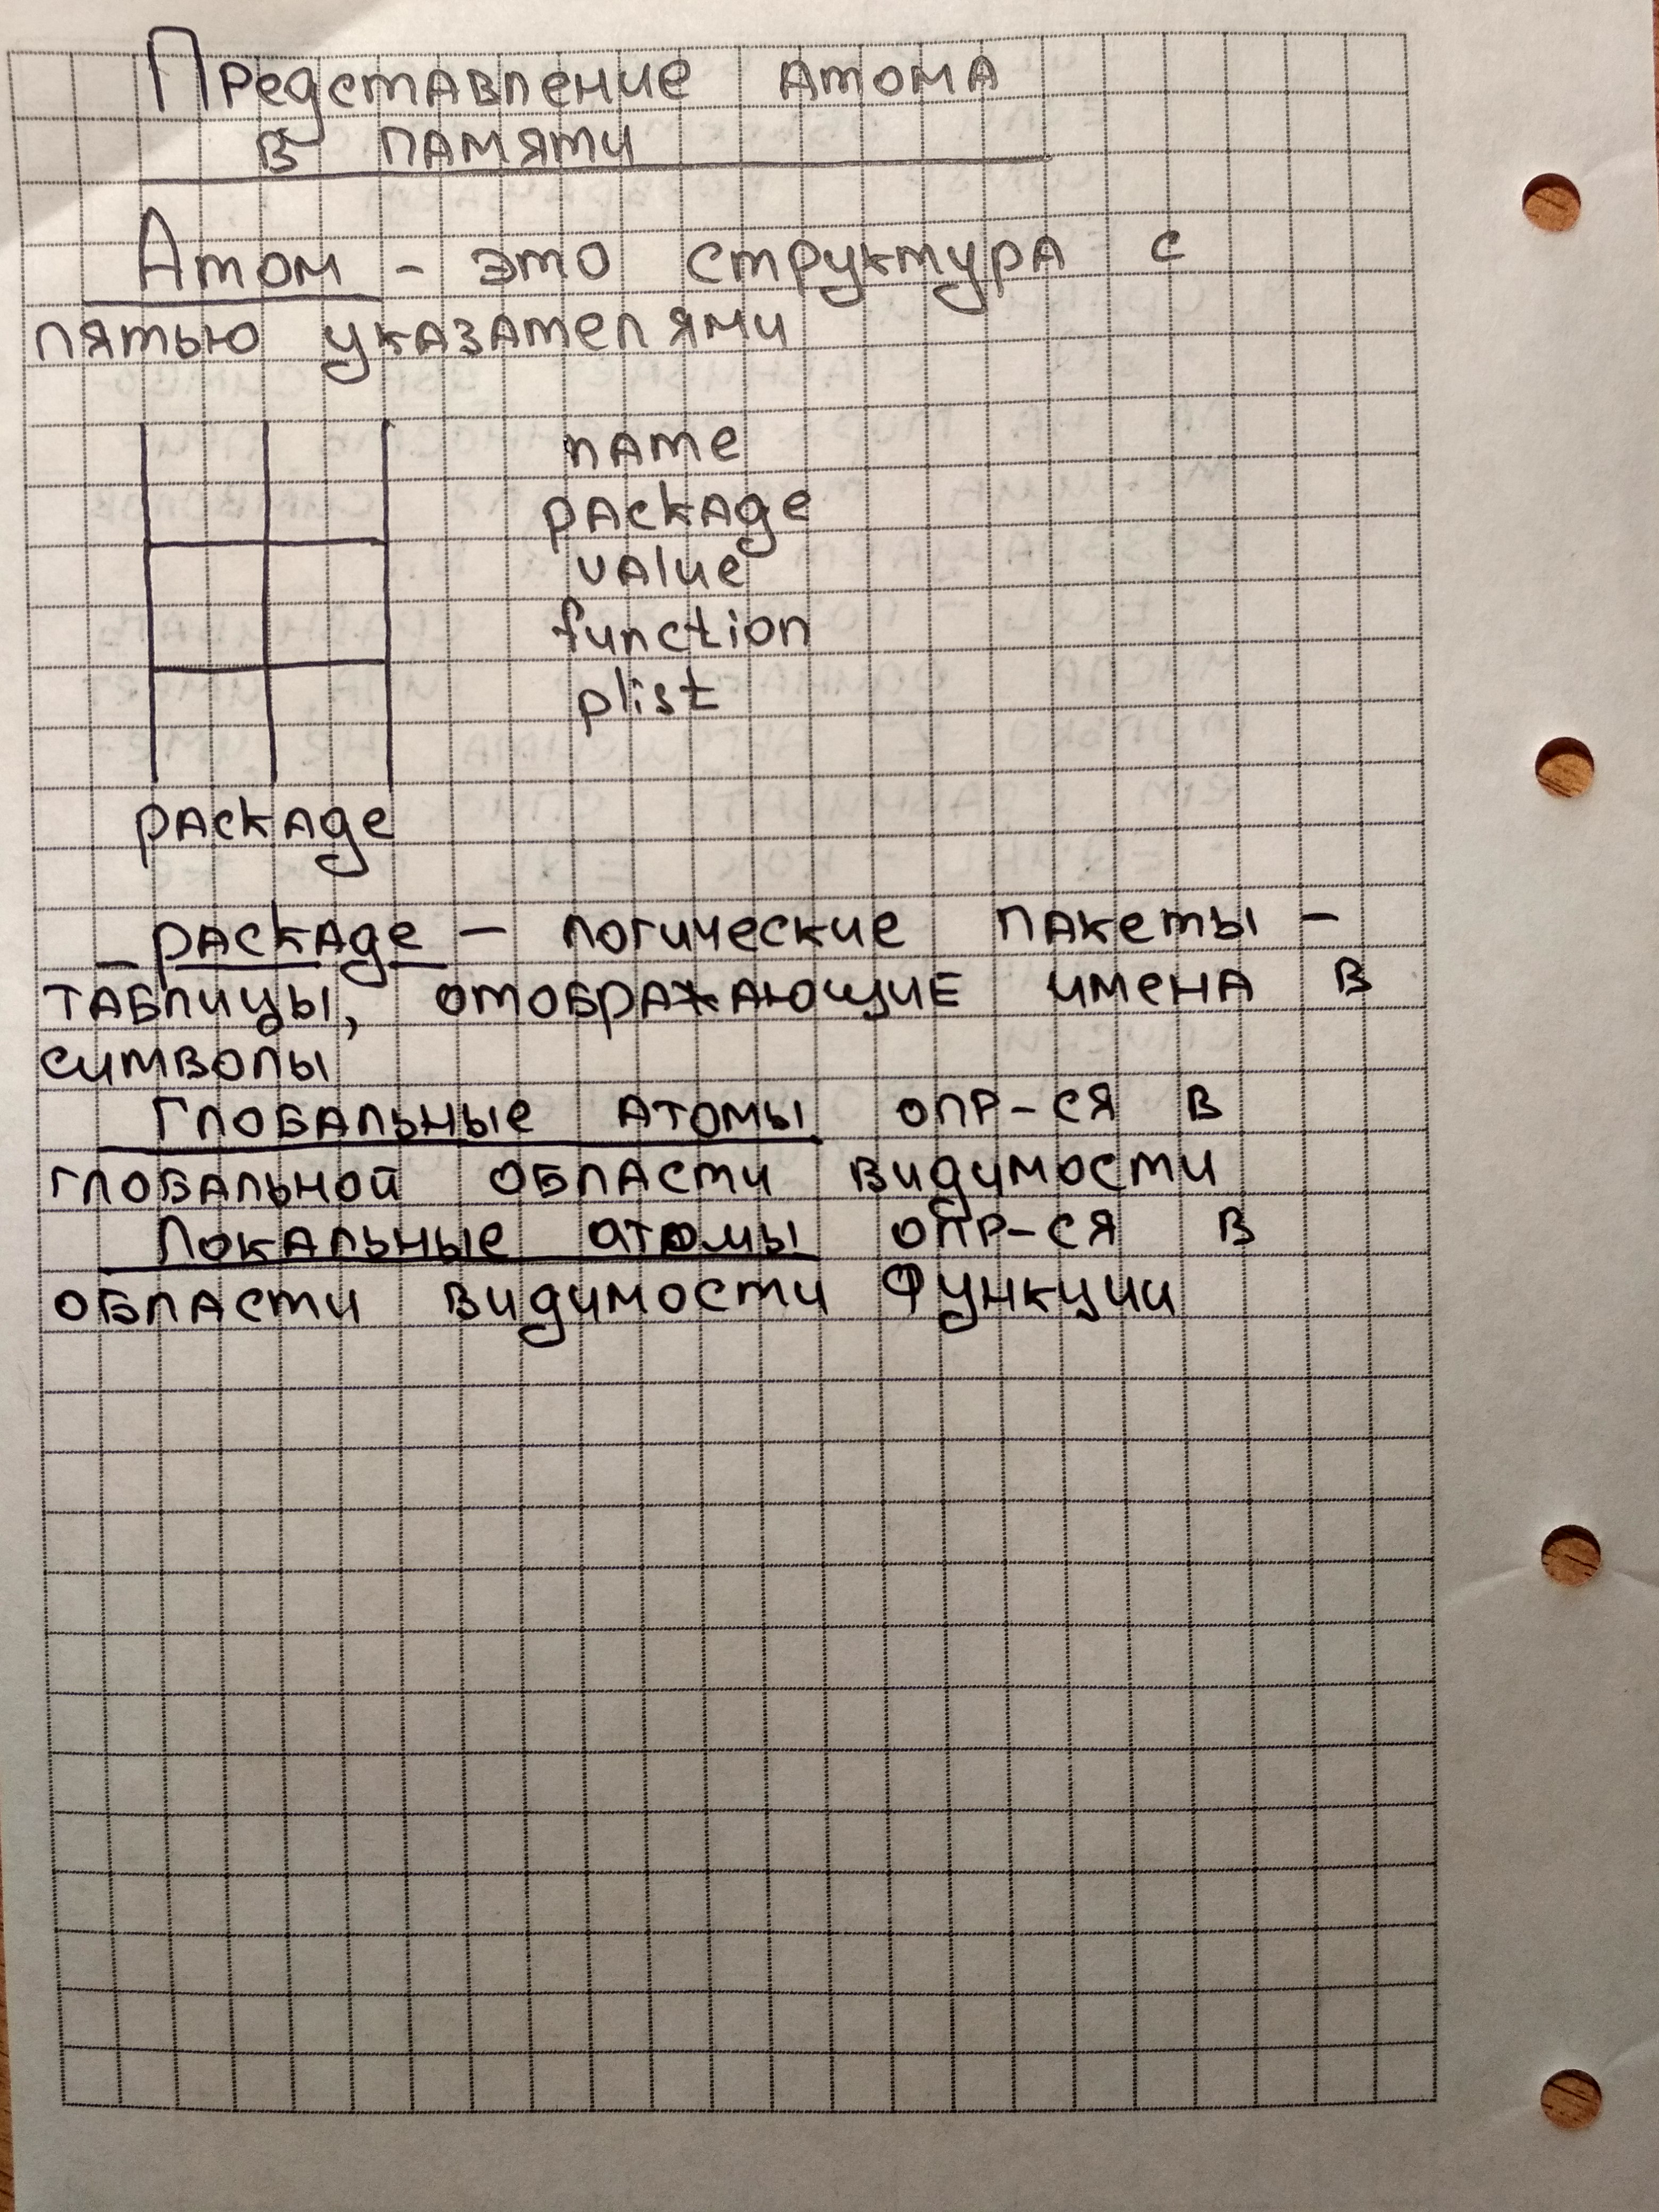 Представление атома
в памяти
Атом - это структура с
пятью указателями
name
package
value
function
plist
package
package - логические пакеты -
таблицы, отображающие имена в
символы
Глобальные атомы опр-ся в
глобальной области видимости
Локальные атомы опр-ся в
области видимости функции